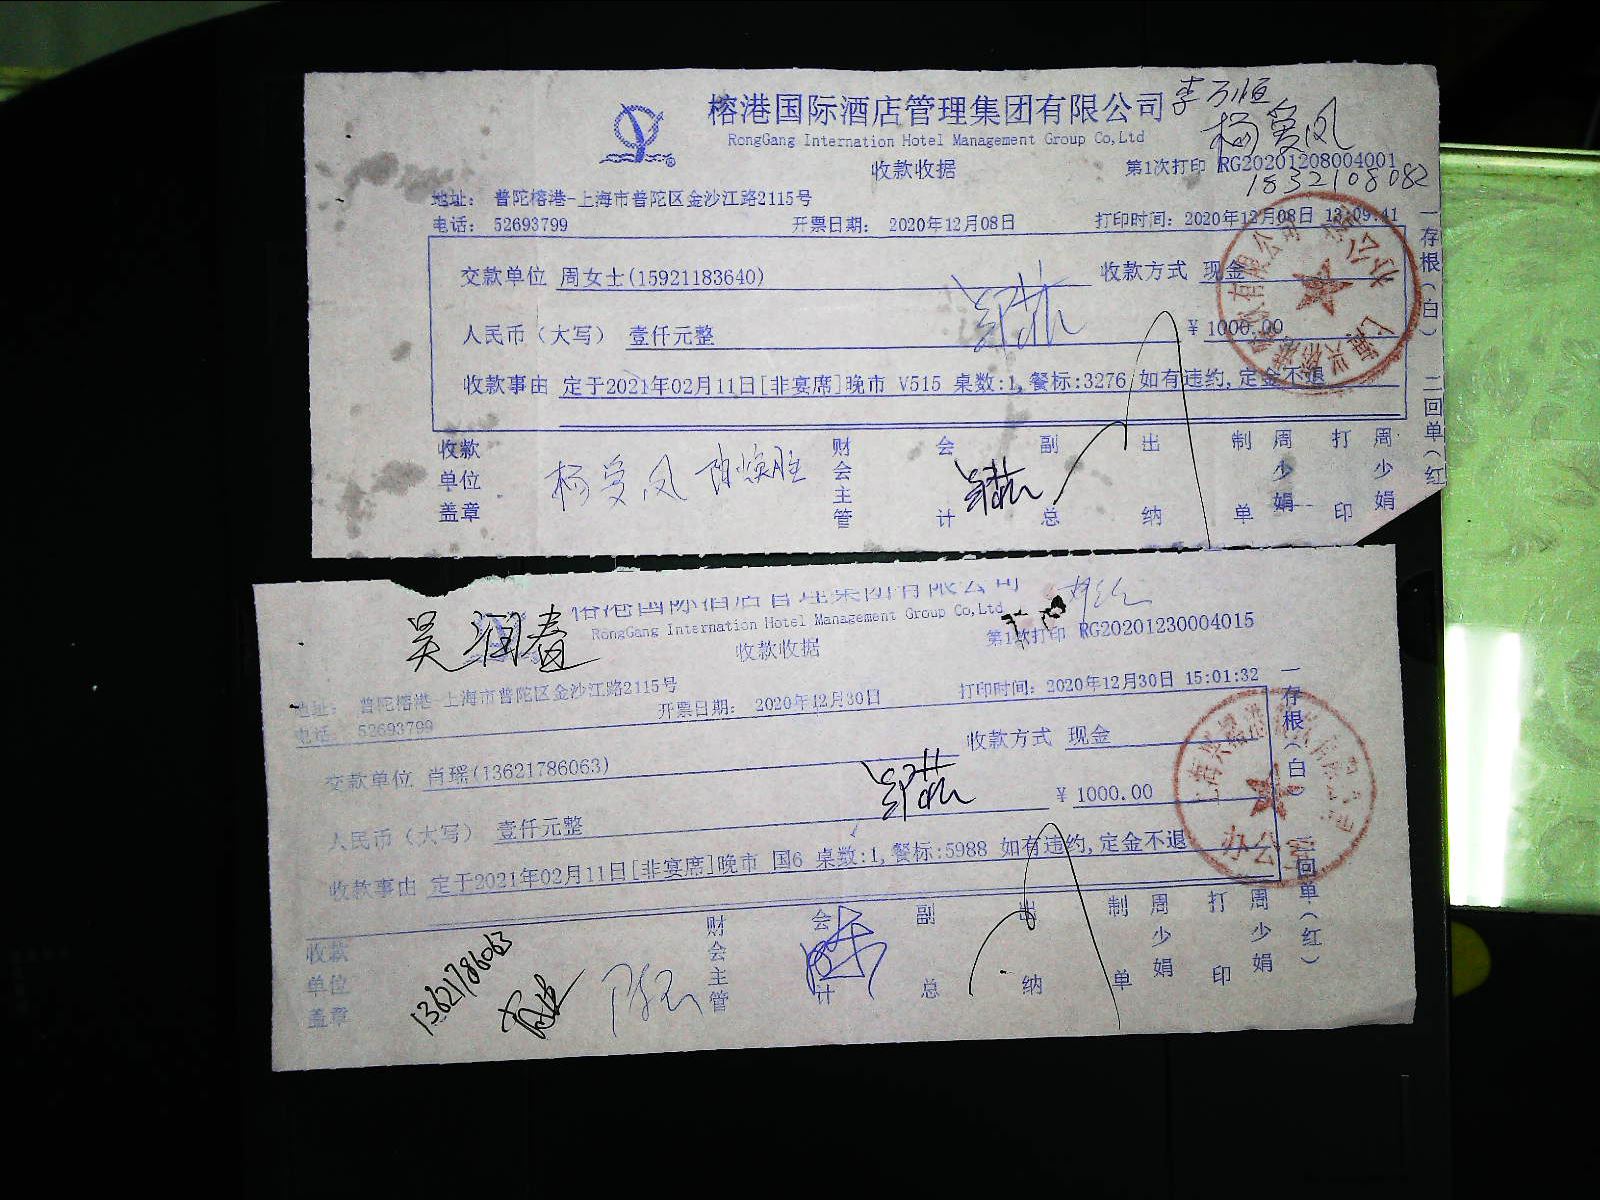 榕港国际酒店管理集团有限公司
李万恒
RongGang Internation Hotel Management Group Co,Ltd
杨爱凤
收款收据
第1次打印 RG20201208004001
1832108082
地址： 普陀榕港-上海市普陀区金沙江路2115号
电话： 52693799 开票日期： 2020年12月08日 打印时间：2020年12月08日 13:09:41
交款单位 周女士(15921183640) 收款方式 现金
人民币（大写） 壹仟元整 ￥ 1000.00
收款事由 定于2021年02月11日[非宴席]晚市 V515 桌数:1,餐标:3276 如有违约,定金不退
一存根(白) 二回单(红
收款单位盖章 杨爱凤 财会主管 会计 副总 出纳 制单 周少娟 打印 周少娟
榕港国际酒店管理集团有限公司
RongGang Internation Hotel Management Group Co,Ltd
吴润春
收款收据
第1次打印 RG20201230004015
地址： 普陀榕港-上海市普陀区金沙江路2115号
电话： 52693799 开票日期： 2020年12月30日 打印时间：2020年12月30日 15:01:32
交款单位 肖瑶(13621786063) 收款方式 现金
人民币（大写） 壹仟元整 ￥ 1000.00
收款事由 定于2021年02月11日[非宴席]晚市 国6 桌数:1,餐标:5988 如有违约,定金不退
一存根(白) 二回单(红)
办公
收款单位盖章 13621786063 财会主管 会计 副总 出纳 制单 周少娟 打印 周少娟